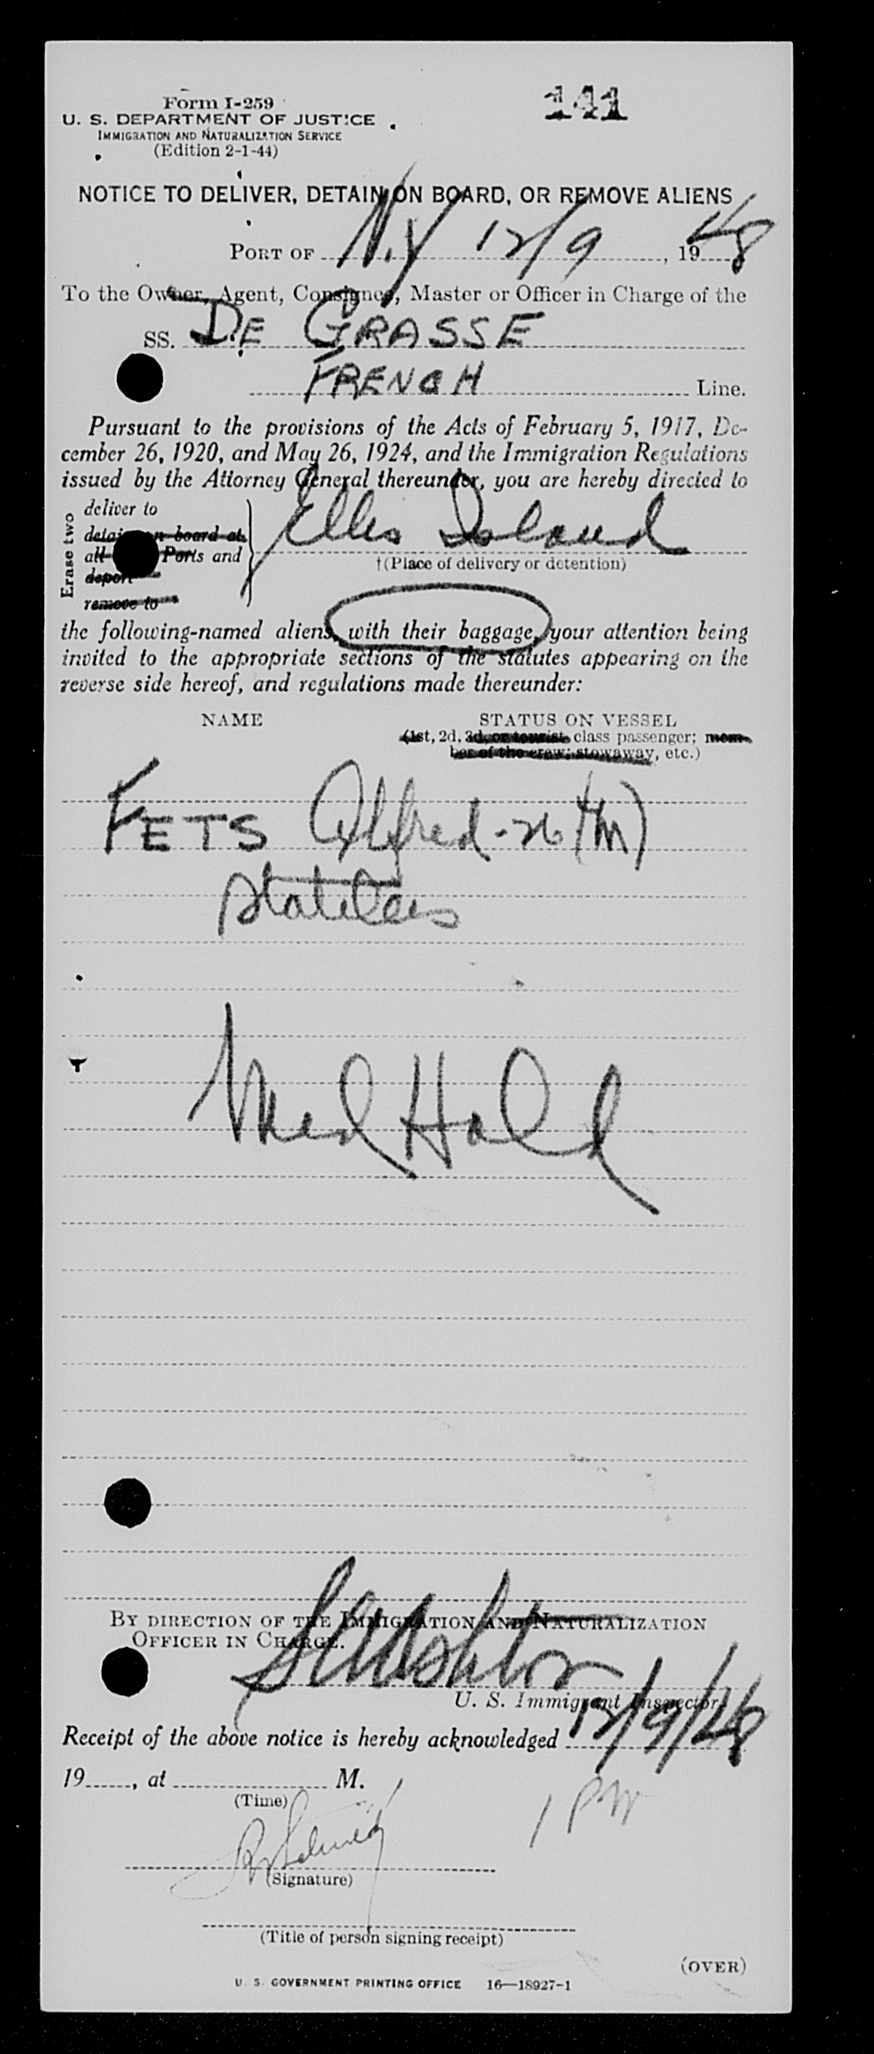 Form I-259
141
U. S. DEPARTMENT OF JUSTICE
IMMIGRATION AND NATURALIZATION SERVICE
(Edition 2-1-44)
NOTICE TO DELIVER, DETAIN ON BOARD, OR REMOVE ALIENS
PORT OF N.Y 12/9, 1948
To the Owner, Agent, Consignee, Master or Officer in Charge of the
SS. DE GRASSE
FRENCH Line.
Pursuant to the provisions of the Acts of February 5, 1917, De-
cember 26, 1920, and May 26, 1924, and the Immigration Regulations
issued by the Attorney General thereunder, you are hereby directed to
Erase two
deliver to
detain on board at
all Ports and
deport
remove to
Ellis Island
†(Place of delivery or detention)
the following-named aliens, with their baggage, your attention being
invited to the appropriate sections of the statutes appearing on the
reverse side hereof, and regulations made thereunder:
NAME STATUS ON VESSEL
(1st, 2d, 3d, or tourist class passenger; mem-
ber of the crew; stowaway, etc.)
FETS Alfred - 26 (m)
Stateless
Med Hold
BY DIRECTION OF THE IMMIGRATION AND NATURALIZATION
OFFICER IN CHARGE.
U. S. Immigrant Inspector.
Receipt of the above notice is hereby acknowledged 12/9/48
19____, at ____ M.
(Time)
1 PM
(Signature)
(Title of person signing receipt)
(OVER)
U. S. GOVERNMENT PRINTING OFFICE 16—18927-1